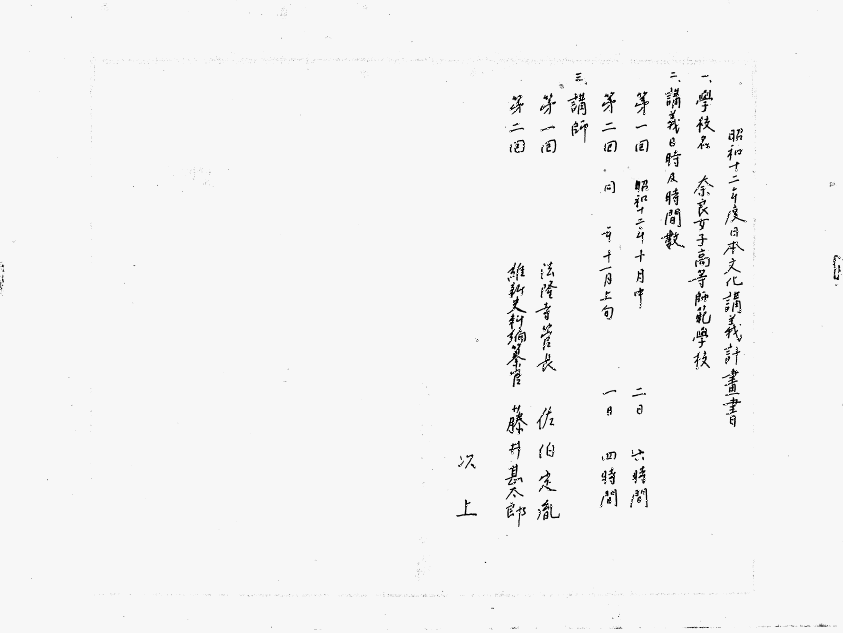 昭和十二年度日本文化講義計畫書
一、學校名　奈良女子高等師範學校
二、講義日時及時間數
第一回　昭和十二年十月中　二日　六時間
第二回　同　年十一月上旬　一日　四時間
三、講師
第一回　法隆寺管長　佐伯定胤
第二回　維新史料編纂官　藤井甚太郎
以上